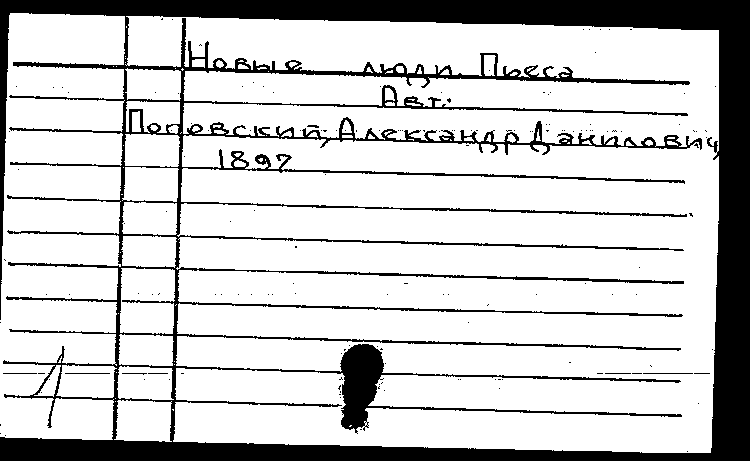 Новые люди. Пьеса
Авт.:
Поповский, Александр Данилович,
1897
1